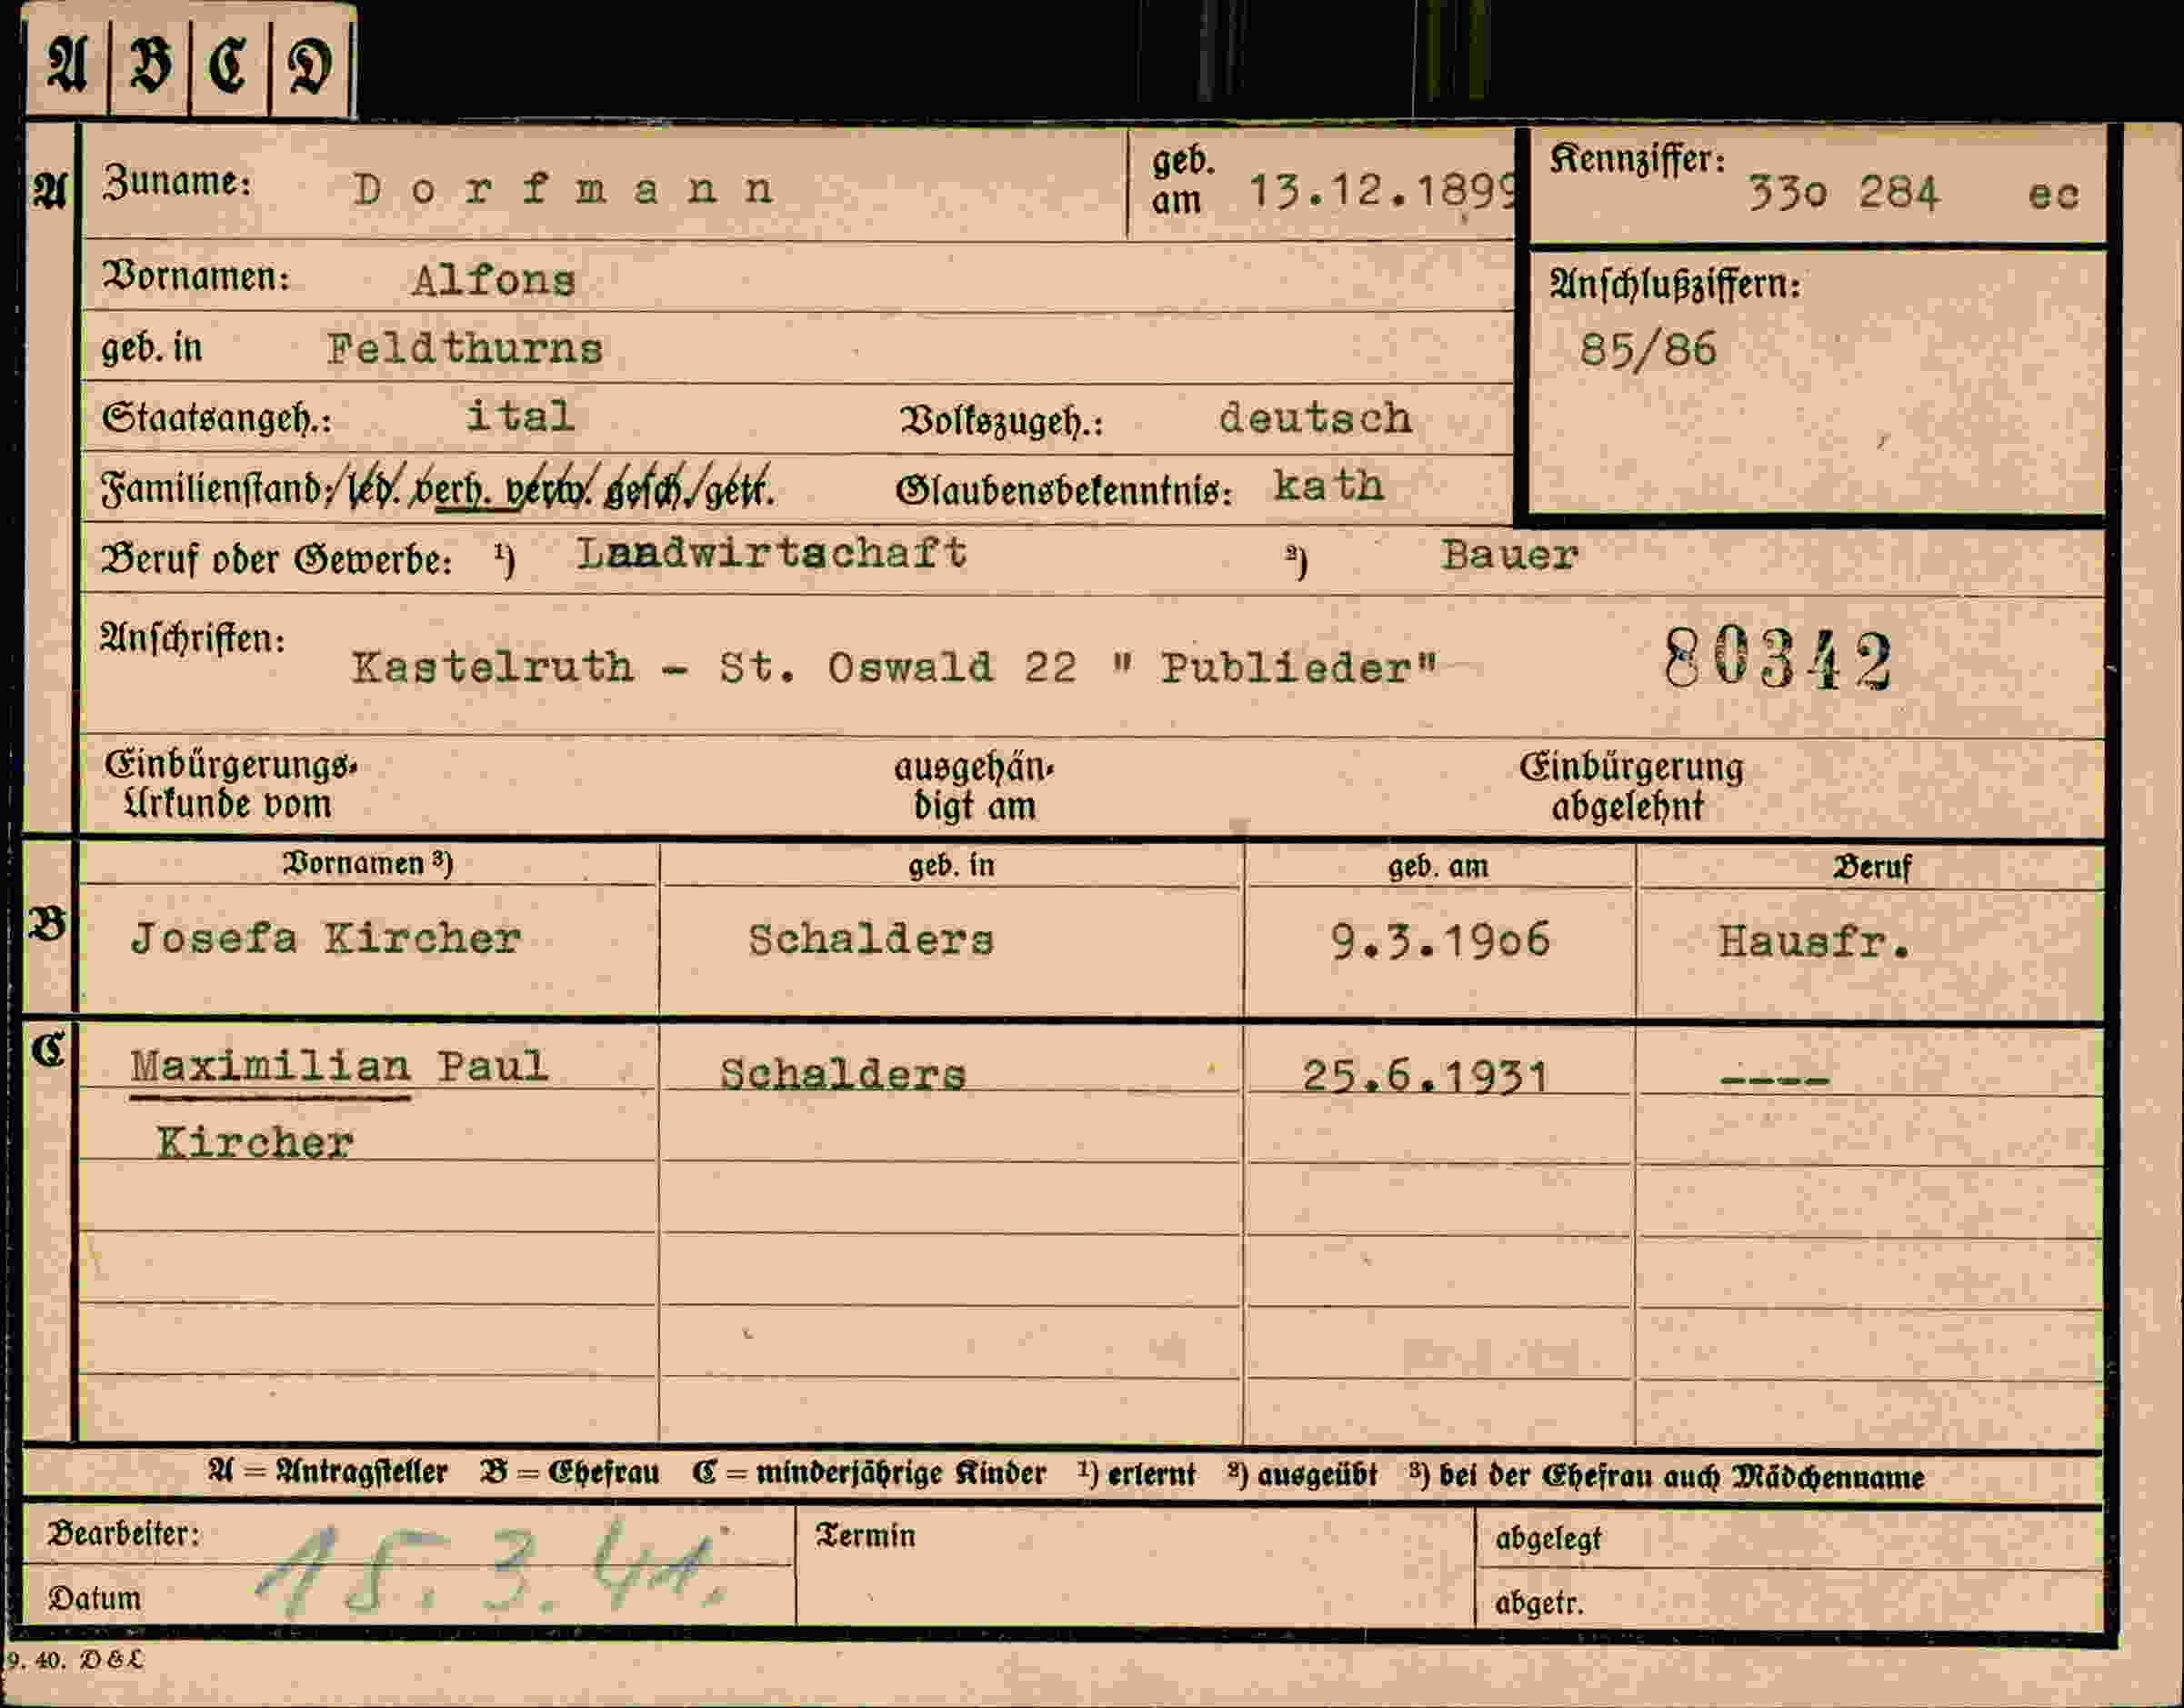 A B C D
A Zuname: Dorfmann geb. am 13.12.1899 Kennziffer: 33o 284 ec
Vornamen: Alfons Anschlußziffern:
geb. in Feldthurns 85/86
Staatsangeh.: ital Volkszugeh.: deutsch
Familienstand: led. verh. verw. gesch. getr. Glaubensbekenntnis: kath
Beruf oder Gewerbe: ¹) Landwirtschaft ²) Bauer
Anschriften: Kastelruth - St. Oswald 22 " Publieder" 80342
Einbürgerungs- ausgehän- Einbürgerung
Urkunde vom digt am abgelehnt
Vornamen ³) geb. in geb. am Beruf
B Josefa Kircher Schalders 9.3.19o6 Hausfr.
C Maximilian Paul Schalders 25.6.1931 ----
Kircher
A = Antragsteller B = Ehefrau C = minderjährige Kinder ¹) erlernt ²) ausgeübt ³) bei der Ehefrau auch Mädchenname
Bearbeiter: Termin abgelegt
Datum 15.3.41. abgetr.
9. 40. D & L